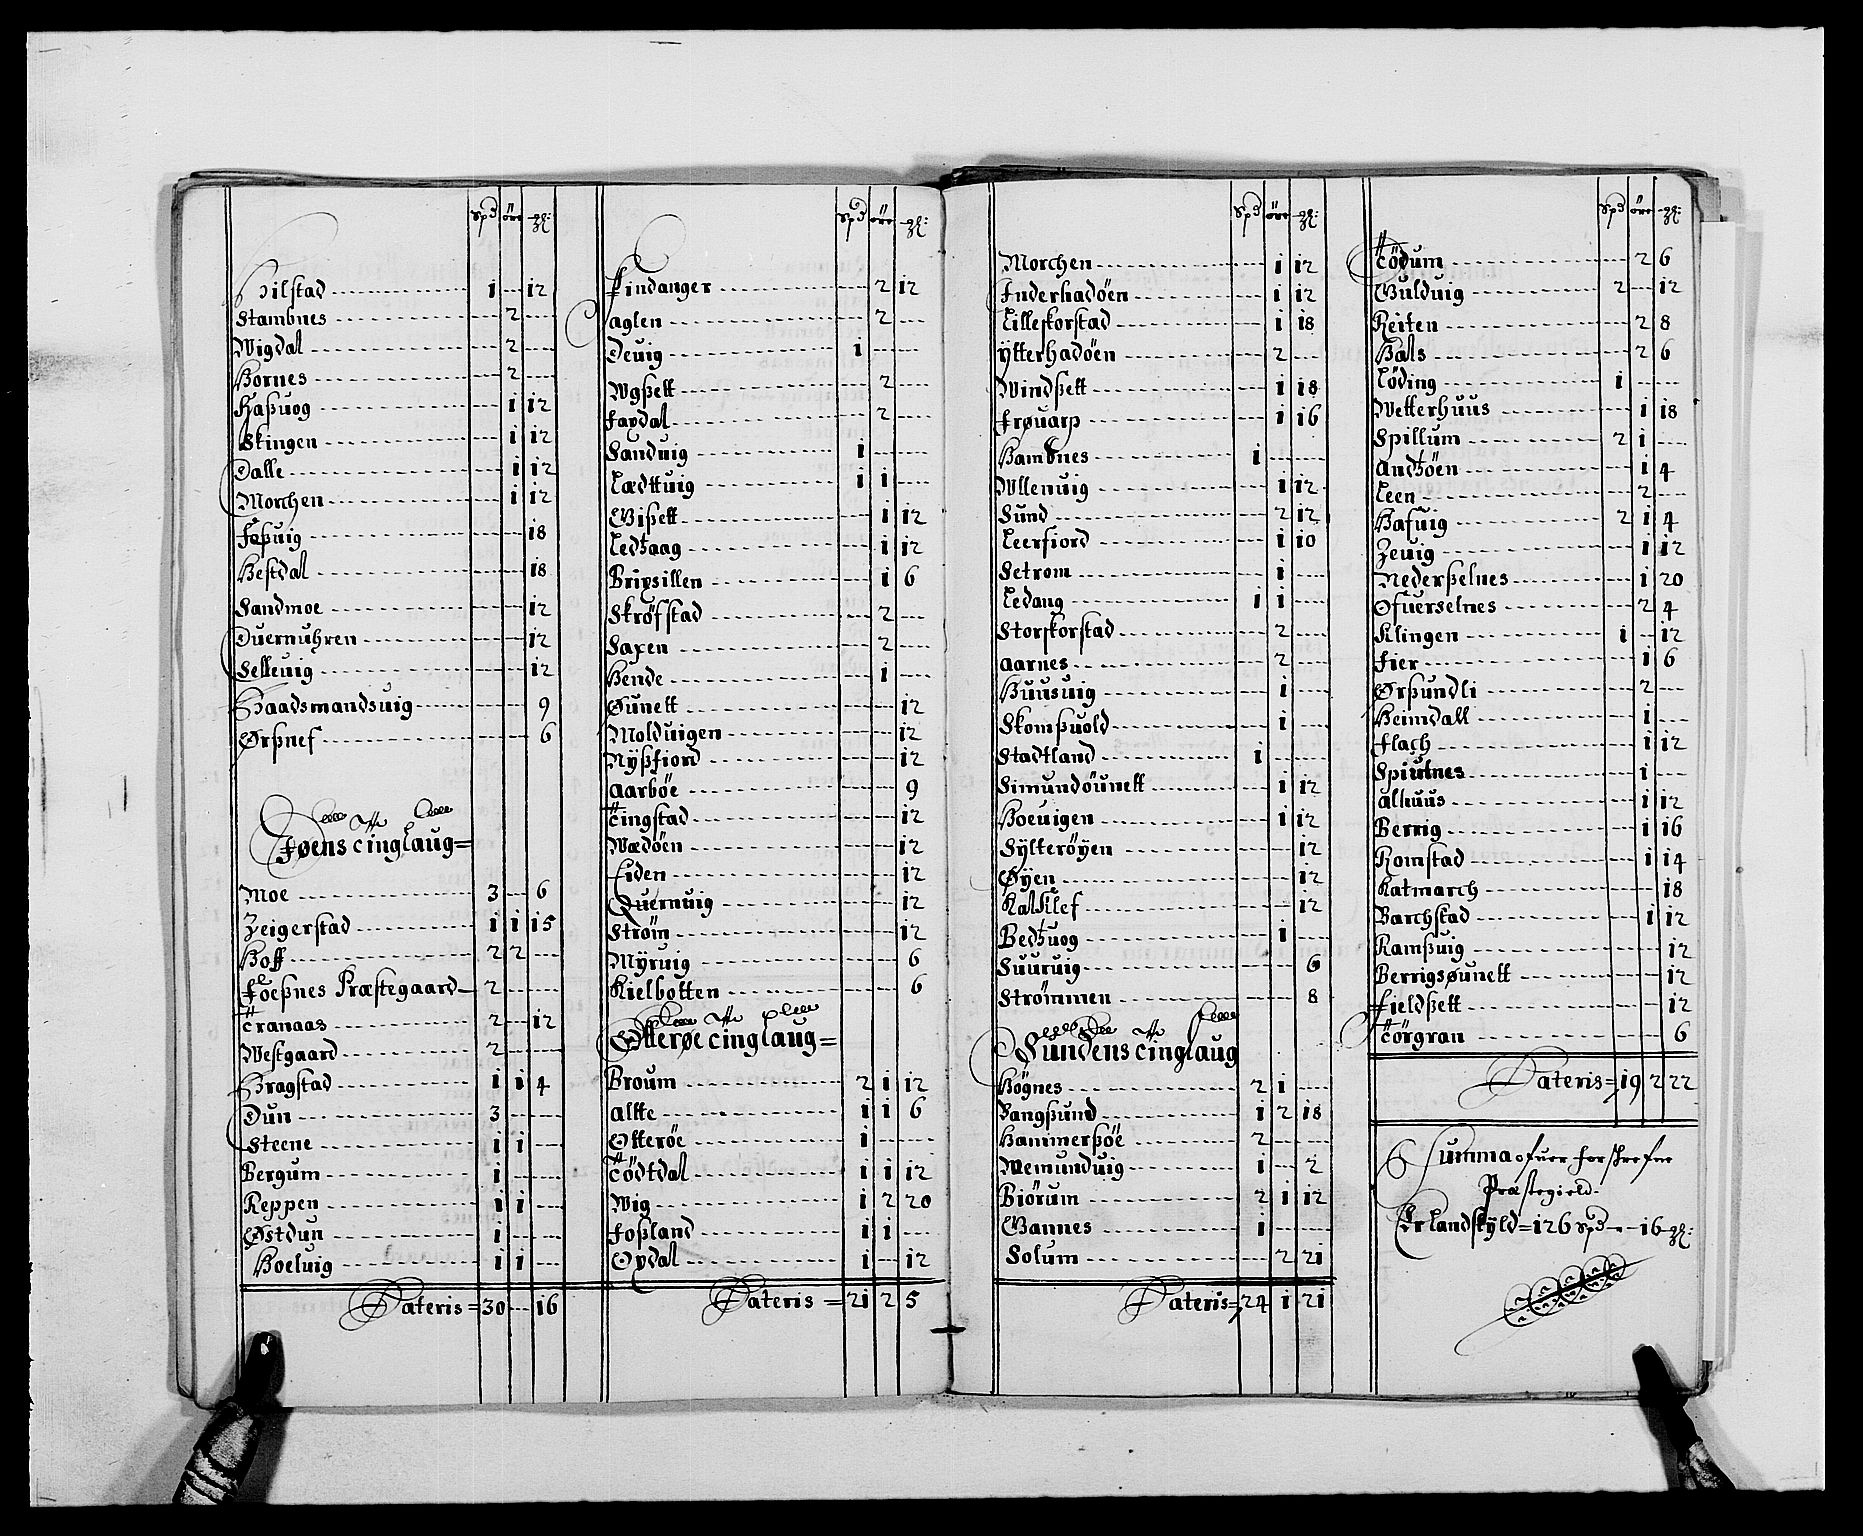 Spd öre ₰:
Hilstad 1 -- 12
Stambnes -- 2 --
Wigdal -- 2 --
Hornes -- 2 --
Haßuog -- 1 12
Skingen -- 1 12
Dalle -- 1 12
Morchen -- 1 12
Foßuig -- -- 18
Hestdal -- -- 18
Sandmoe -- -- 12
Duernuhren -- -- 12
Selleuig -- -- 12
Haadsmandsuig -- -- 9
Ørßnef -- -- 6
Føens Tinglaug =
Moe 3 -- 6
Zeigerstad 1 1 15
Hoff 2 2 --
Foeßnes Præstegaard 2 --
Tranaas 2 -- 12
Westgaard 2 --
Bragstad 1 1 4
Dun 3 --
Steene 1 1 --
Bergum 1 --
Reppen 1 1 --
Østdun 1 --
Hoeluig 1 1 --
Lateris = 30 -- 16
Spd öre ₰:
Findanger -- 2 12
Aglen -- 2 --
Deuig 1 --
Wgßett -- 2 --
Fardal -- 2 --
Sanduig 1 --
Lædttuig 1 1 --
Wißett -- 1 12
Ledtzaag -- 1 12
Brixsillen -- 1 6
Skröfstad -- 2 --
Saxen -- 2 --
Hende -- 1 --
Øunett -- -- 12
Molduigen -- -- 12
Nyßfiord -- -- 12
Aarböe -- -- 9
Tingstad -- -- 12
Wædöen -- -- 12
Eiden -- -- 12
Quernuig -- -- 12
Ström -- -- 12
Myruig -- -- 6
Kielbotten -- -- 6
Otterøe Tinglaug =
Broum 2 1 12
Altte 1 1 6
Otteröe 1 --
Tödtdal 1 1 12
Wig 1 2 20
Foßland 1 1 --
Opdal 1 -- 12
Lateris = 21 2 5
Spd öre ₰:
Morchen -- 1 12
Inderhadöen -- 1 12
Lilleskorstad -- 1 18
Ytterhadöen -- 2 --
Windßett -- 1 18
Frøuarp -- 1 16
Hambnes 1 --
Wllenuig -- 1 12
Sund -- 2 12
Leerfiord -- 1 10
Setrom -- 1 --
Ledang 1 1 --
Storskorstad -- 2 --
Aarnes -- 2 --
Huusuig -- 1 --
Skomßuold -- 1 --
Stadtland 1 --
Simundöunett -- 1 12
Hoeuigen -- 1 12
Sylteröyen -- -- 12
Øyen -- -- 12
Kalklef -- -- 12
Bedtzuog -- 1 --
Suuruig -- -- 6
Strömmen -- -- 8
Sundens Tinglaug
Högnes 2 1 --
Bangßund 1 2 18
Hammerßöe 2 --
Wemunduig 1 -- 2
Biörum 2 1 12
Wannes 1 --
Solum -- 2 21
Lateris = 24 1 21
Spd öre ₰:
Tödum -- 2 6
Wulduig 2 -- 12
Reiten -- 2 8
Hals -- 2 6
Löding 1 --
Wetterhuus -- 1 18
Spillum 2 1 --
Andtzöen -- 1 4
Leen -- 2 --
Hafuig 2 1 4
Zeuig -- 1 12
Nederßelnes -- 1 20
Ofuerselnes -- 2 4
Klingen 1 -- 12
Fier -- 1 6
Ørßundli -- 2 --
Heimdall -- 1 --
Flach -- 1 12
Spiutnes -- 1 --
Alhuus -- 1 12
Berrig -- 1 16
Romstad -- 1 14
Katmarch -- -- 18
Barchstad -- 1 12
Ramßuig -- -- 12
Berrigsøunett -- -- 12
Fieldßett -- -- 12
Törgran -- -- 6
Lateris = 19 2 22
Summa ofuer forschrefne
Præstegield
Er Landskyld = 126 Spd -- 16 ₰: